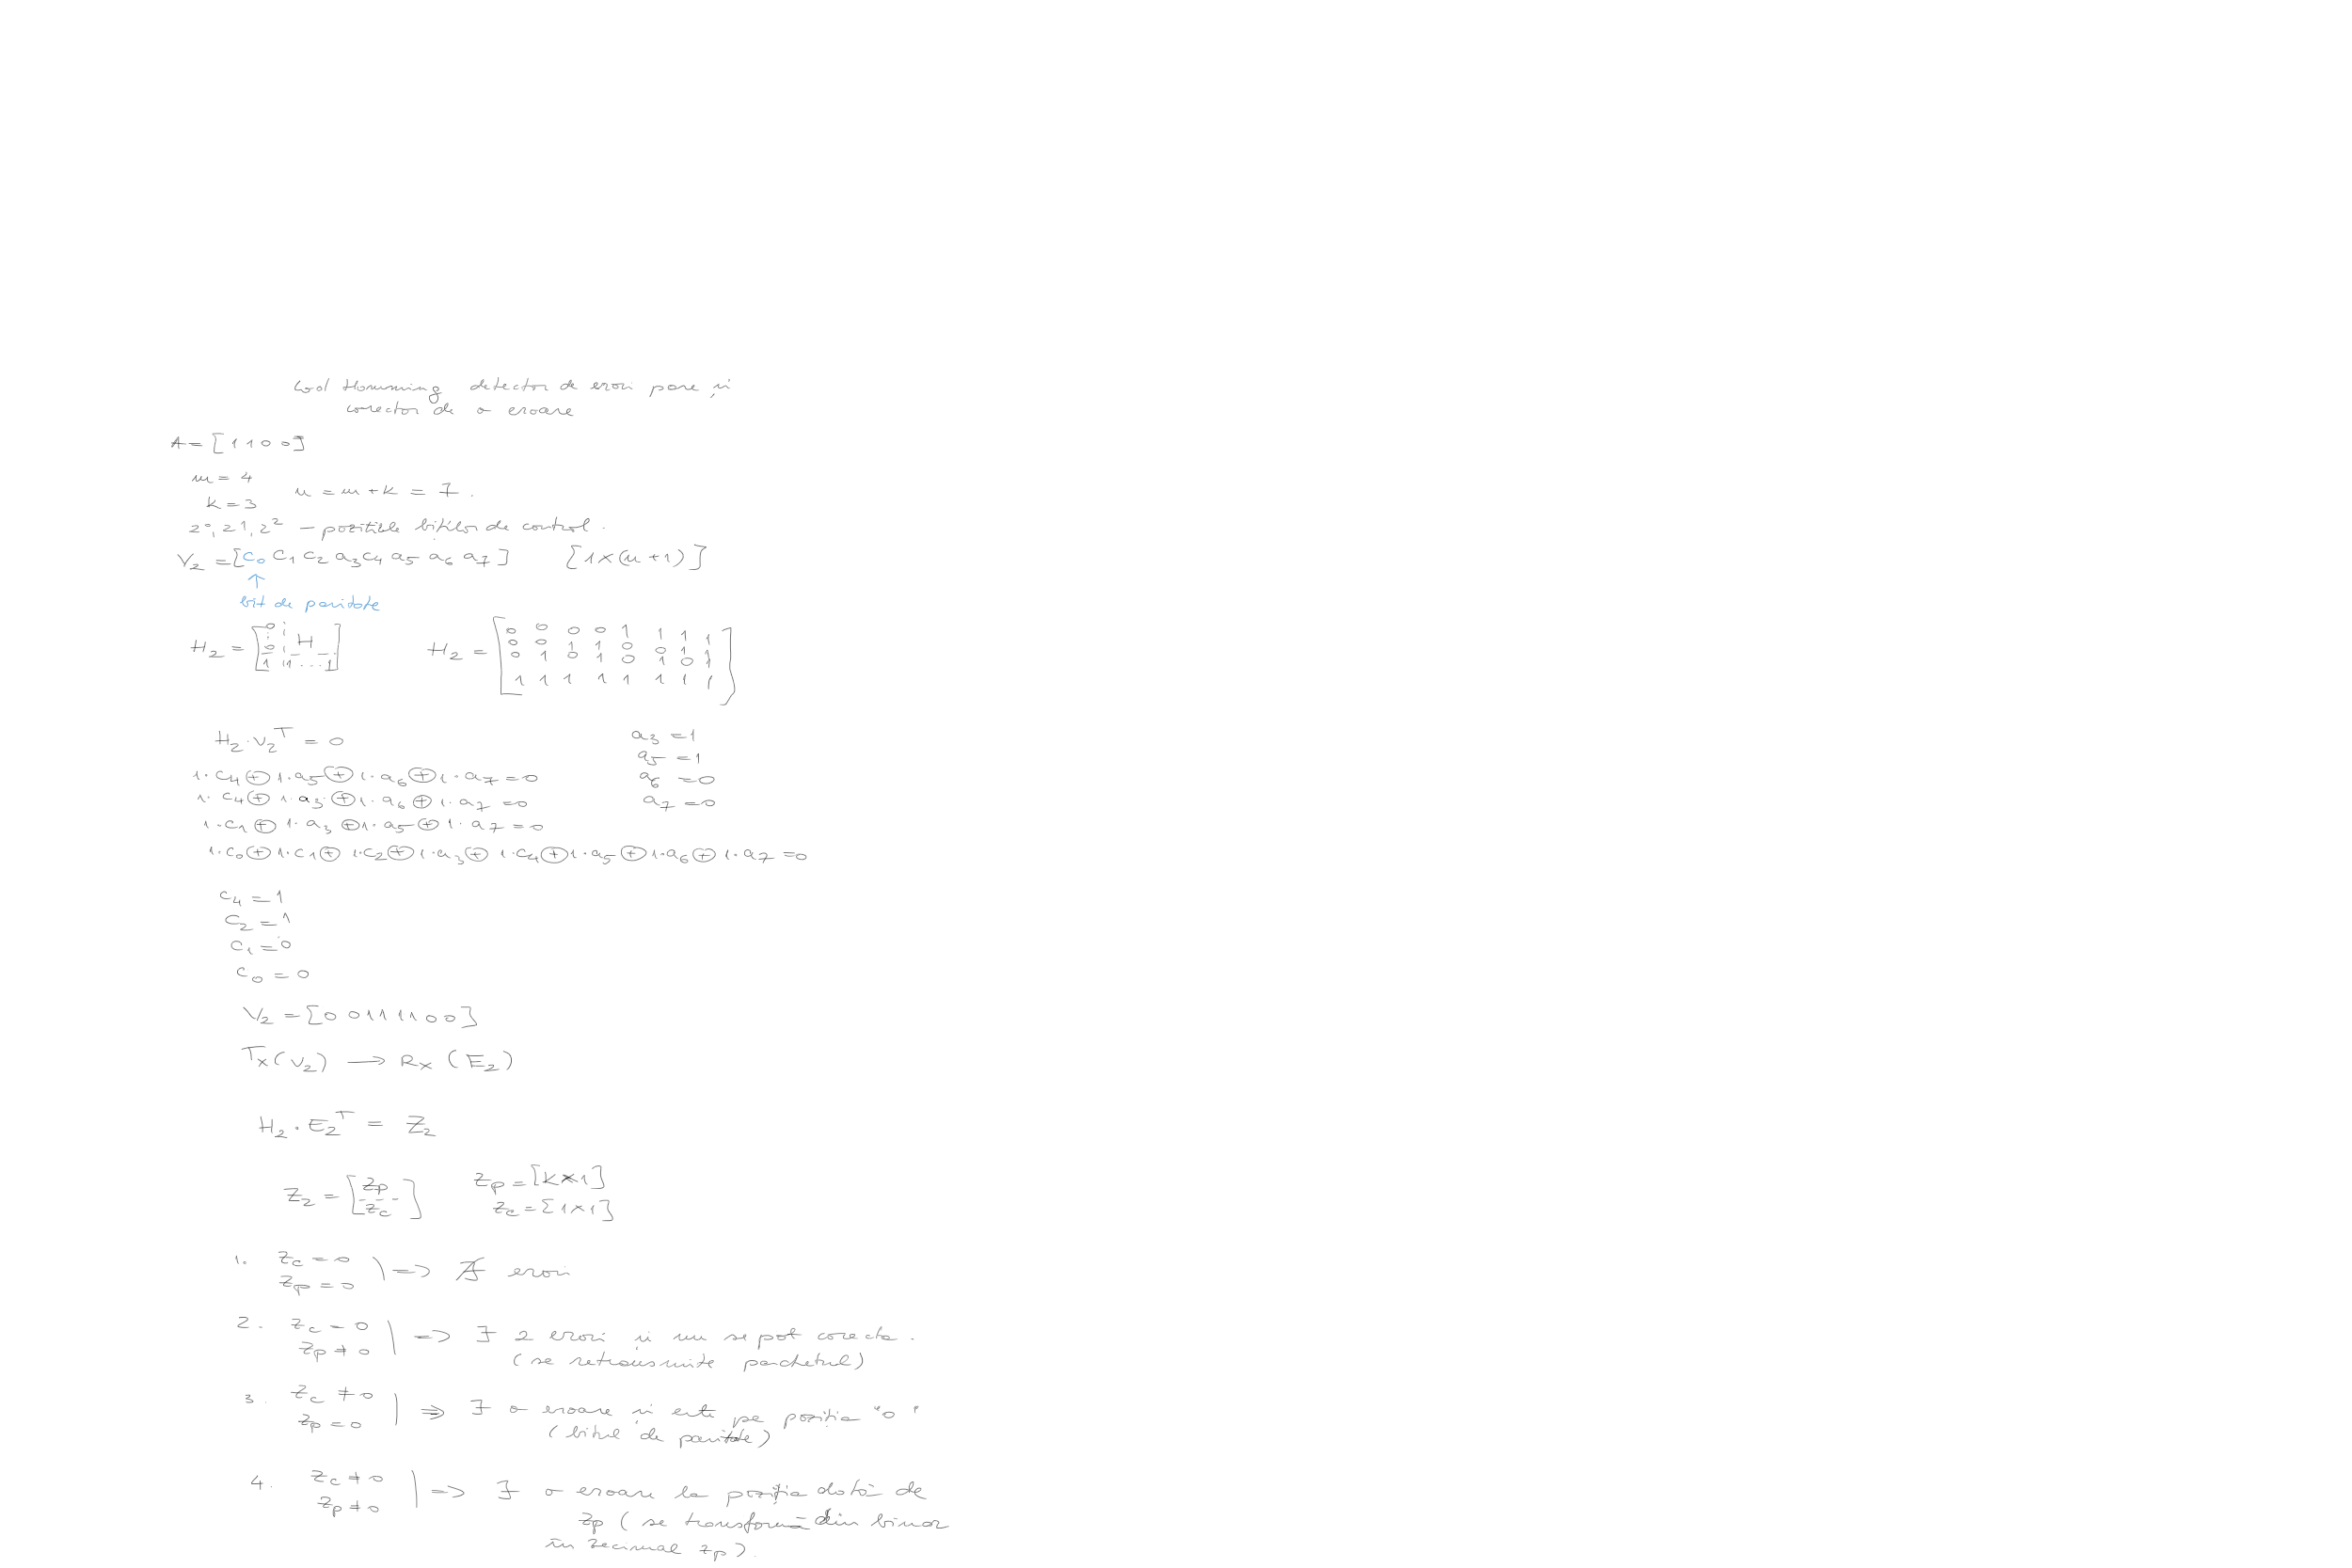 Cod Hamming detector de erori pare și
corector de o eroare
A = [1 1 0 0]
m = 4
k = 3 n = m + k = 7.
2^0, 2^1, 2^2 – pozițiile biților de control.
V_2 = [c_0 c_1 c_2 a_3 c_4 a_5 a_6 a_7] [1×(n+1)]
↑
bit de paritate
H_2 = [0 ⋮ 0 ¦ H ; 1 ¦ 1 ... 1] H_2 = [0 0 0 0 1 1 1 1
0 0 1 1 0 0 1 1
0 1 0 1 0 1 0 1
1 1 1 1 1 1 1 1]
H_2 · V_2^T = 0 a_3 = 1
a_5 = 1
1·c_4 ⊕ 1·a_5 ⊕ 1·a_6 ⊕ 1·a_7 = 0 a_6 = 0
1·c_4 ⊕ 1·a_3 ⊕ 1·a_6 ⊕ 1·a_7 = 0 a_7 = 0
1·c_1 ⊕ 1·a_3 ⊕ 1·a_5 ⊕ 1·a_7 = 0
1·c_0 ⊕ 1·c_1 ⊕ 1·c_2 ⊕ 1·a_3 ⊕ 1·c_4 ⊕ 1·a_5 ⊕ 1·a_6 ⊕ 1·a_7 = 0
c_4 = 1
c_2 = 1
c_1 = 0
c_0 = 0
V_2 = [0 0 1 1 1 1 0 0]
Tx(V_2) → Rx(E_2)
H_2 · E_2^T = Z_2
Z_2 = [z_p ; z_c] z_p = [k×1]
z_c = [1×1]
1. z_c = 0
z_p = 0 | => ∄ erori
2. z_c = 0
z_p ≠ 0 | => ∃ 2 erori și nu se pot corecta.
(se retransmite pachetul)
3. z_c ≠ 0
z_p = 0 | => ∃ o eroare și este pe poziția "0"
(bitul de paritate)
4. z_c ≠ 0
z_p ≠ 0 | => ∃ o eroare la poziția dată de
z_p (se transformă din binar
în zecimal z_p).